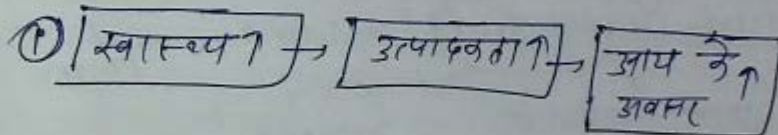 ① स्वास्थ्य ↑ → उत्पादकता ↑ → आय के ↑
अवसर